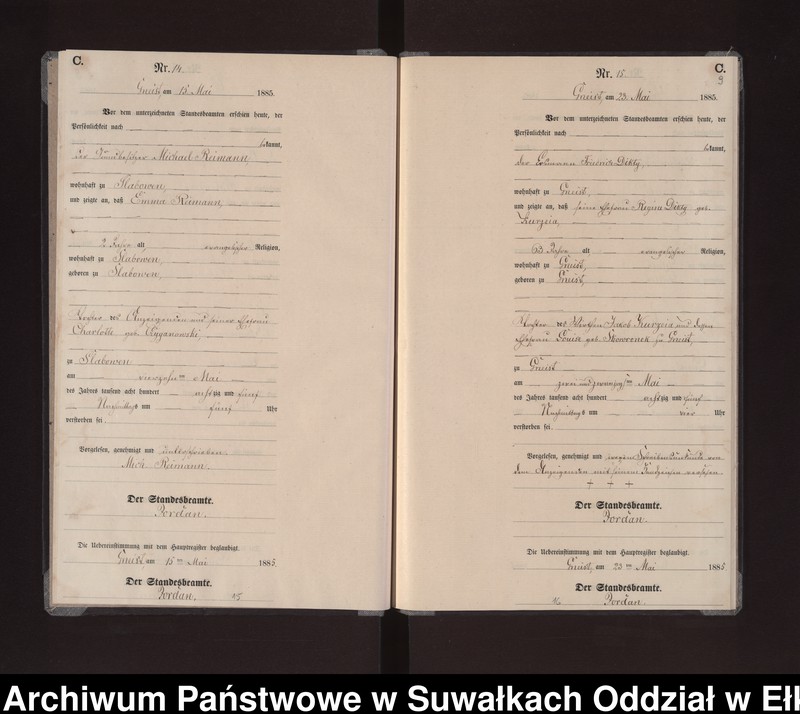 C.
Nr. 14
Gneist, am 15. Mai 1885.
Vor dem unterzeichneten Standesbeamten erschien heute, der
Persönlichkeit nach
kannt,
Michael Riemann,
wohnhaft zu Slabowen,
und zeigte an, daß Emma Riemann,
2 Jahre alt evangelischer Religion,
wohnhaft zu Slabowen,
geboren zu Slabowen,
Tochter des Anzeigenden und seiner Ehefrau
Charlotte geb. Cyganowski,
zu Slabowen
am vierzehnten Mai
des Jahres tausend acht hundert achtzig und fünf
Nachmittags um fünf Uhr
verstorden sei
Vorgelesen, genehmigt und unterschrieben.
Mich. Riemann.
Der Standesbeamte.
Jordan.
Die Uebereinstimmung mit dem Hauptregister beglaubigt.
Gneist, am 15ten Mai 1885.
Der Standesbeamte.
Jordan.
15
C.
9
Nr. 15
Gneist, am 23. Mai 1885.
Vor dem unterzeichneten Standesbeamten erschien heute, der
Persönlichkeit nach
kannt,
der Friedrich Dikty,
wohnhaft zu Gneist,
und zeigte an, daß seine Ehefrau Regina Dikty geb.
Kurzeia,
Jahre alt evangelischer Religion,
wohnhaft zu Gneist,
geboren zu Gneist,
Tochter des Jakob Kurzeia und dessen
Ehefrau Louise geb. Skowronek zu Gneist,
zu Gneist
am zwei und zwanzigsten Mai
des Jahres tausend acht hundert achtzig und fünf
Nachmittags um vier Uhr
verstorben sei
Vorgelesen, genehmigt und wegen Schreibensunkunde von
dem Anzeigenden mit seinem Handzeichen versehen
+ + +
Der Standesbeamte.
Jordan.
Die Uebereinstimmung mit dem Hauptregister beglaubigt.
Gneist, am 23ten Mai 1885
Der Standesbeamte.
16 Jordan.
Archiwum Państwowe w Suwałkach Oddział w Ełk